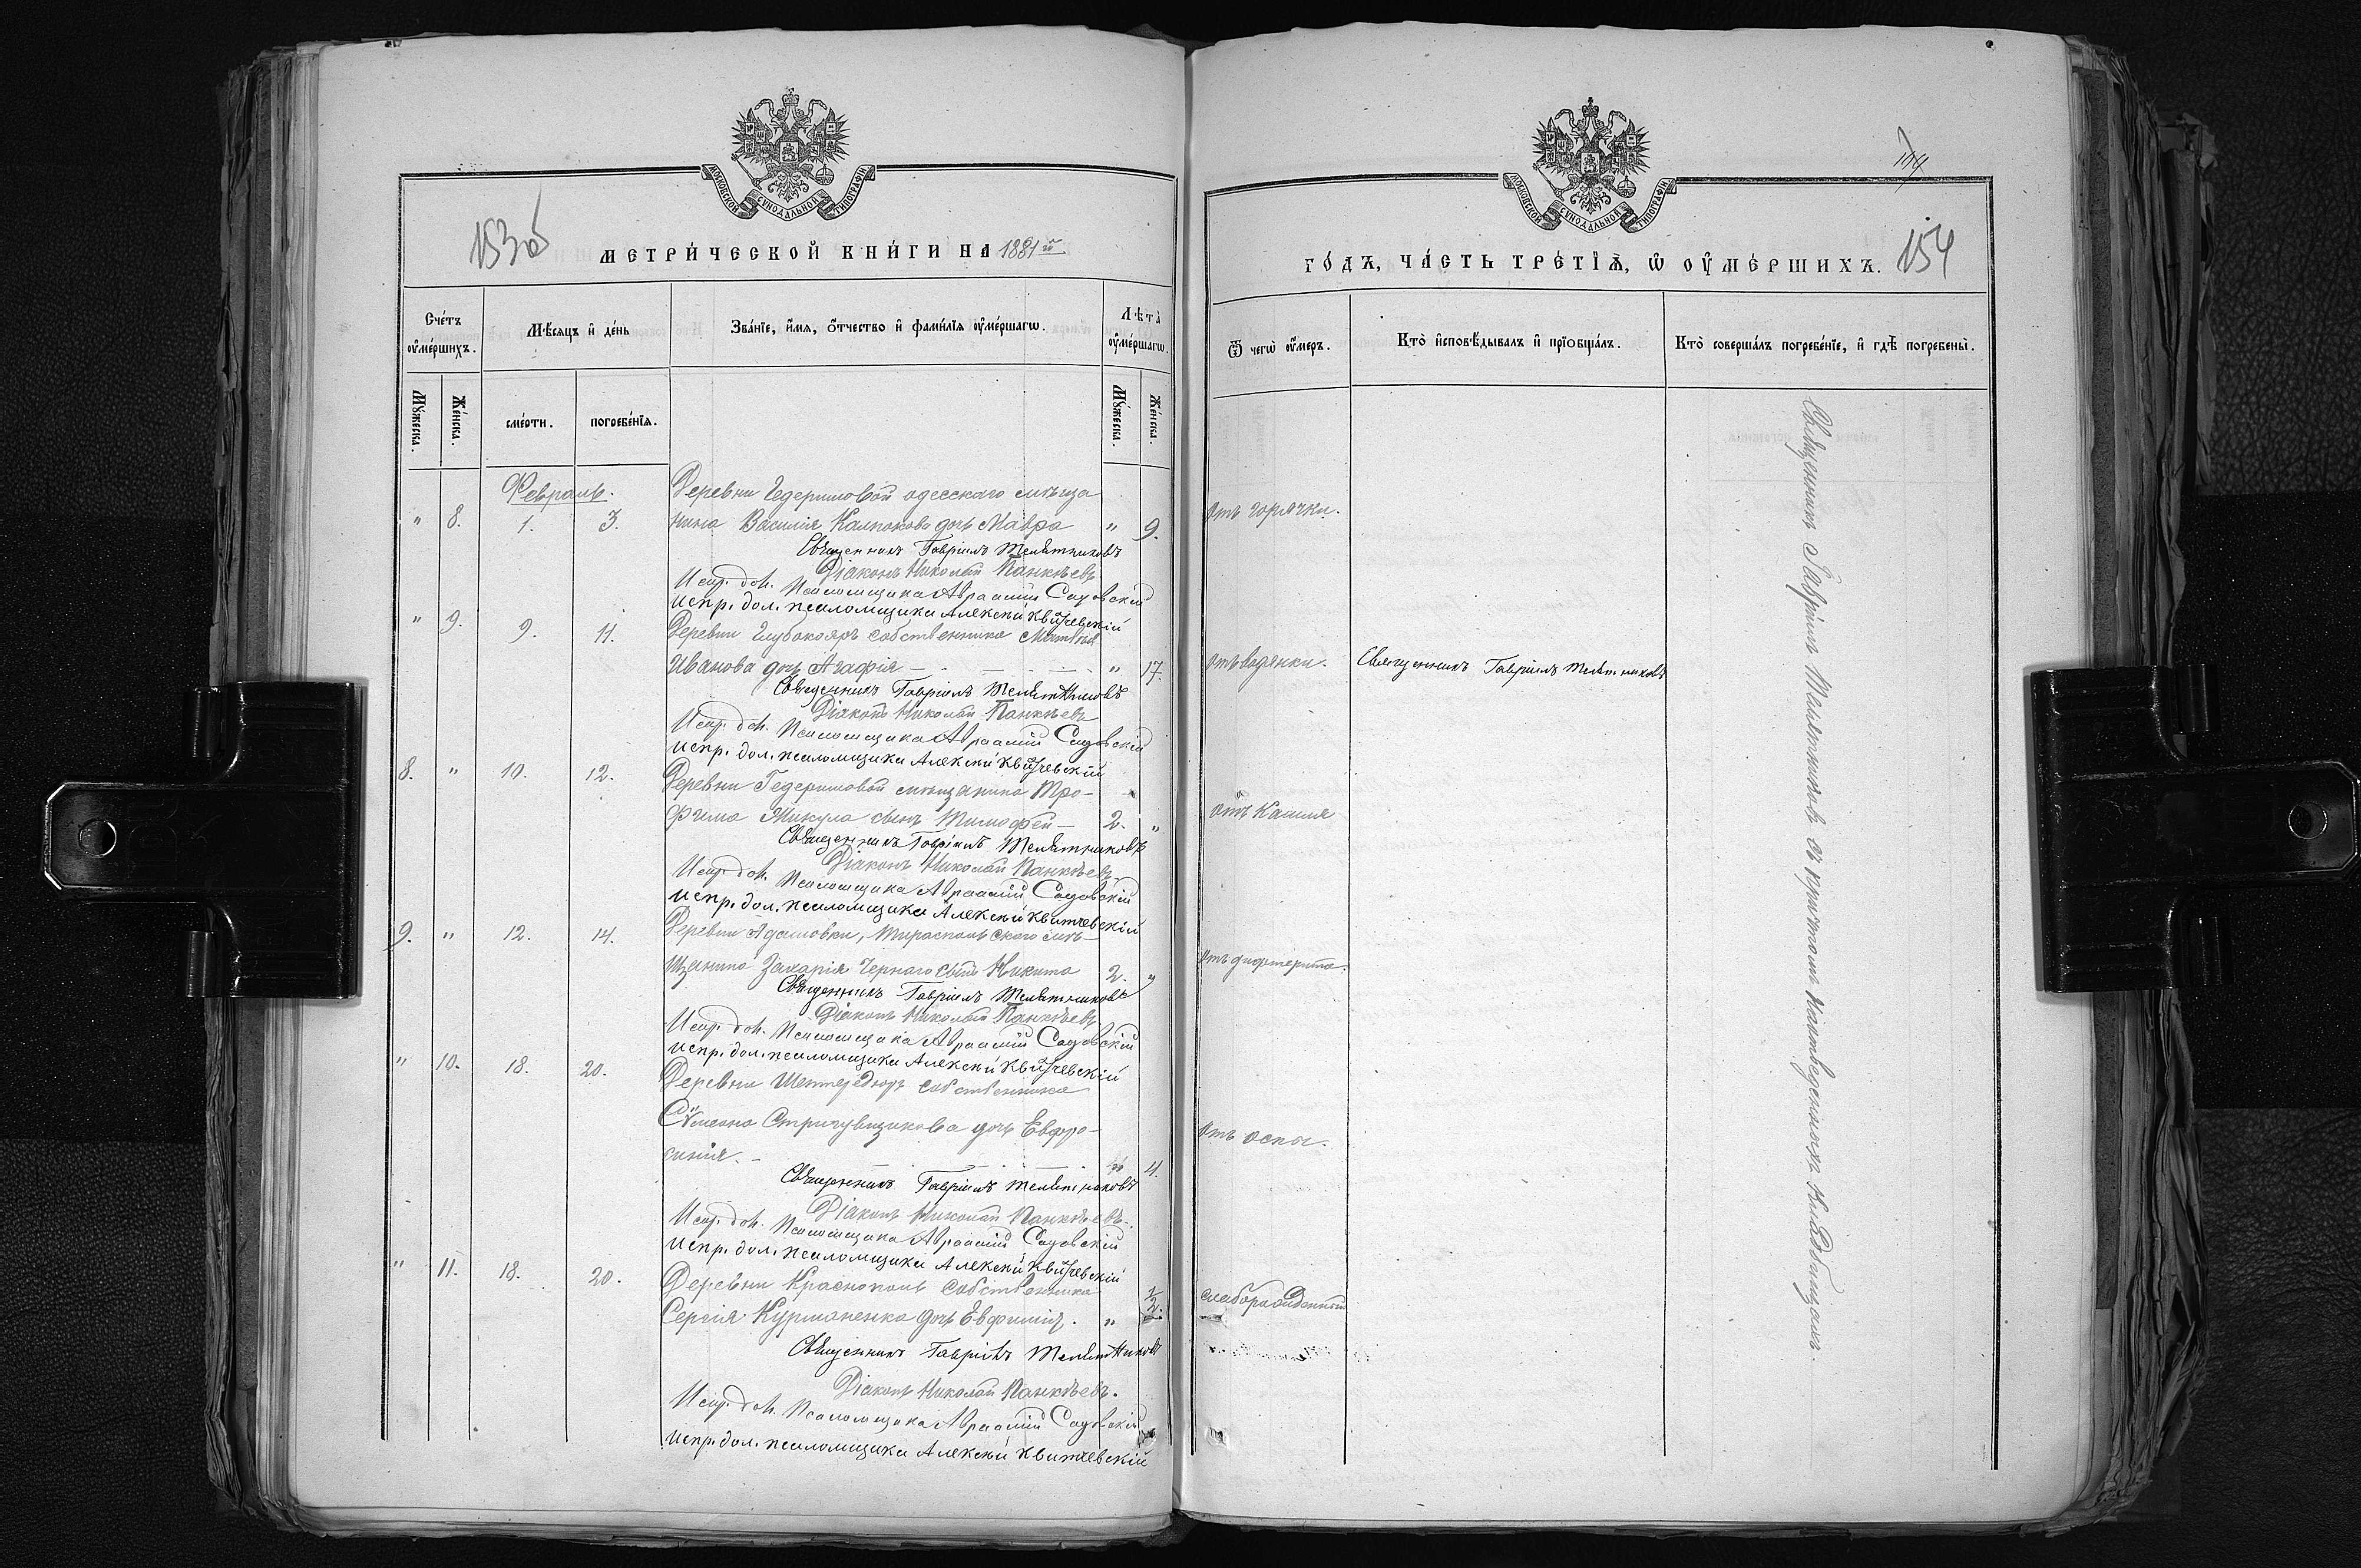 МОСКОВСКОЙ СѴНОДАЛЬНОЙ ТИПОГРАФІИ
153об
МЕТРИ́ЧЕСКОЙ КНИ́ГИ НА 1881й
Счéтъ ѹ҆мéршихъ.
Мѣ́сяцъ и҆ дéнь
Звáнїе, и҆́мя, ѻ҆́тчество и҆ фами́лїя ѹ҆мéршагѡ.
Лѣта̀ ѹ҆мéршагѡ.
Мꙋ́жеска.
Жéнска.
смéрти.
погребéнїя.
Мꙋ́жеска.
Жéнска.
Февраль.
Деревни Гедеримовой одесскаго мѣща
" 8. 1. 3. нина Василія Калпакова дочь Мавра " 9.
Священникъ Гавріилъ Мелѣтниковъ
Діаконъ Николай Панкѣевъ
Испр. дол. Псаломщика Авраамій Садовскій
Испр. дол. псаломщика Алексѣй Квитчевскій
" 9. 9. 11. Деревни Глубокояръ собственника Матвѣя
Иванова дочь Агафія " 17.
Священникъ Гавріилъ Мелѣтниковъ
Діаконъ Николай Панкѣевъ
Испр. дол. Псаломщика Авраамій Садовскій
Испр. дол. псаломщика Алексѣй Квитчевскій
8. " 10. 12. Деревни Гедеримовой мѣщанина Тро-
фима Микула сынъ Тимофей 2. "
Священникъ Гавріилъ Мелѣтниковъ
Діаконъ Николай Панкѣевъ
Испр. дол. Псаломщика Авраамій Садовскій
Испр. дол. псаломщика Алексѣй Квитчевскій
9. " 12. 14. Деревни Адамовки, Тираспольскаго мѣ-
щанина Захарія Чернаго сынъ Никита 2. "
Священникъ Гавріилъ Мелѣтниковъ
Діаконъ Николай Панкѣевъ
Испр. дол. Псаломщика Авраамій Садовскій
Испр. дол. псаломщика Алексѣй Квитчевскій
" 10. 18. 20. Деревни собственника
Сѵмеона дочь Евфро-
синія. " 4.
Священникъ Гавріилъ Мелѣтниковъ
Діаконъ Николай Панкѣевъ.
Испр. дол. Псаломщика Авраамій Садовскій
Испр. дол. псаломщика Алексѣй Квитчевскій
" 11. 18. 20. Деревни Краснополь собственника
Сергія Курманенка дочь Евфимія. " 1/2.
Священникъ Гавріилъ Мелѣтниковъ
Діаконъ Николай Панкѣевъ.
Испр. дол. Псаломщика Авраамій Садовскій
Испр. дол. псаломщика Алексѣй Квитчевскій
МОСКОВСКОЙ СѴНОДАЛЬНОЙ ТИПОГРАФІИ
ГО́ДЪ, ЧА́СТЬ ТРЕ́ТЇѦ, Ѡ҆ ОУ҆МЕ́РШИХЪ.
154
Ѿ чегѡ̀ ѹ҆́меръ.
Кто̀ и҆сповѣ́дывалъ и҆ прїѡбщáлъ.
Кто̀ совершáлъ погребéнїе, и҆ гдѣ̀ погребены̀.
отъ горячки.
отъ водянки. Священникъ Гавріилъ Мелѣтниковъ
отъ кашля
отъ дифтерита.
отъ оспы.
слаборожденный
Священникъ Гавріилъ Мелѣтниковъ съ причтомъ на отведенномъ кладбищахъ.